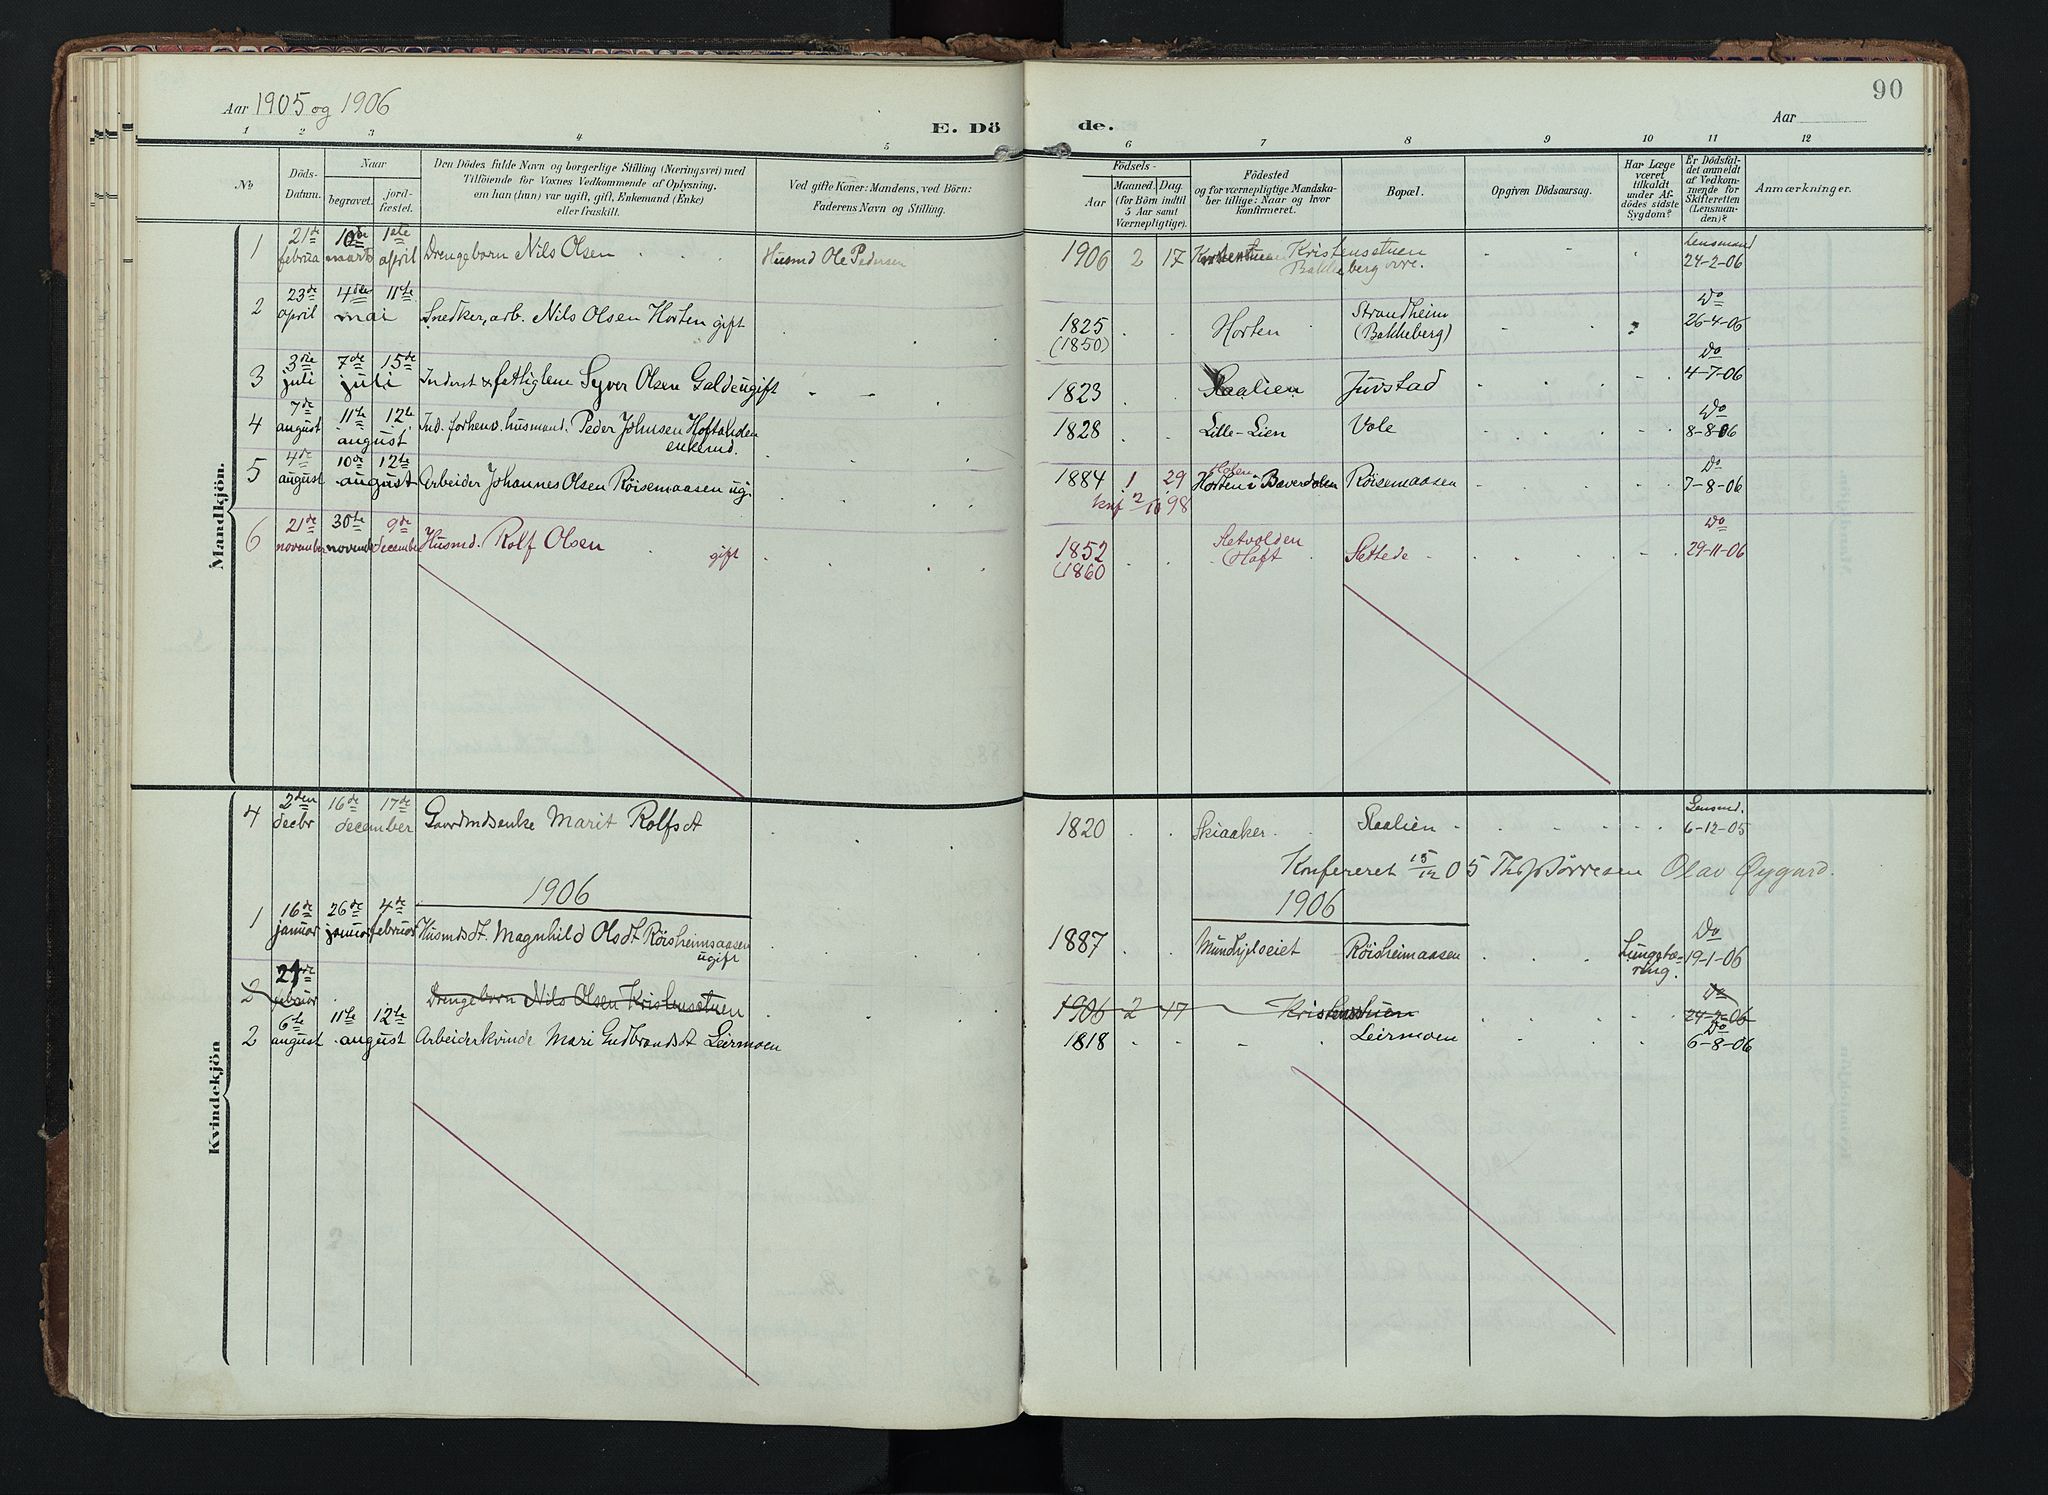 90
Aar 1905 og 1906
E. Dö de.
Aar
1 2 3 4 5 6 7 8 9 10 11 12
No
Döds-Datum.
Naar
begravet.
jord-fæstet.
Den Dödes fulde Navn og borgerlige Stilling (Næringsvei) med
Tilföiende for Voxnes Vedkommende af Oplysning,
om han (hun) var ugift, gift, Enkemand (Enke)
eller fraskilt.
Ved gifte Koner: Mandens, ved Börn:
Faderens Navn og Stilling.
Födsels-
Aar
Maaned. Dag
(for Börn indtil
5 Aar samt
Værnepligtige).
Födested
og for værnepligtige Mandska-
ber tillige: Naar og hvor
konfirmeret.
Bopæl.
Opgiven Dödsaarsag.
Har Læge
været
tilkaldt
under Af-
dödes sidste
Sygdom?
Er Dödsfal-
det anmeldt
af Vedkom-
mende for
Skifteretten
(Lensman-
den)?
Anmærkninger.
Mandkjön.
1 21de februa 10de marts 1ste april Drengebarn Nils Olsen Husmd Ole Pedersen 1906 2 17 Kristensstuen Bakkeberg øvre. Lensmand 24-2-06
2 23de april 4de 11te mai Snedker, arb. Nils Olsen Horten gift 1825 (1850) Horten Strandheim (Bakkeberg) Do 26-4-06
3 3die juli 7de 15de juli Inderst & fattiglem Syver Olsen Galde ugift 1823 Raalien Juvstad Do 4-7-06
4 7de august 11te 12te august Ind. forhenv. husmand. Peder Johnsen enkemd. 1828 Lille-Lien Vole Do 8-8-06
5 4de august 10de 12te august Arbeider Johannes Olsen Röisemaasen ug. 1884 1 29 Horten i Bæverdalen Röisemaasen Do 7-8-06
knf 2/10 98
6 21de november 30te novemb 9de december Husmd. Rolf Olsen gift 1852 (1860 Sletvolden Hoft Slettede Do 29-11-06
Kvindekjön
4 2den decbr 16de 17de december Gaardmdsenke Marit Rolfsdt 1820 Skiaaker Raalien Lensmd. 6-12-05
Konfereret 15/12 05 Olav Øygard.
1906
1906
1 16de januar 26de januar 4de februar Husmdsdt. Magnhild Olsdt Röisheimsaasen ugift 1887 Mundhjelseiet Röisheimaasen Lungetæring. Do 19-1-06
2 21de februar Drengebarn Nils Olsen Kristensstuen 1906 2 17 Kristensstuen Do 24-2-06
2 6te august 11te 12te august Arbeiderkvinde Mari Gudbrandsdt Leirmoen 1818 Leirmoen Do 6-8-06